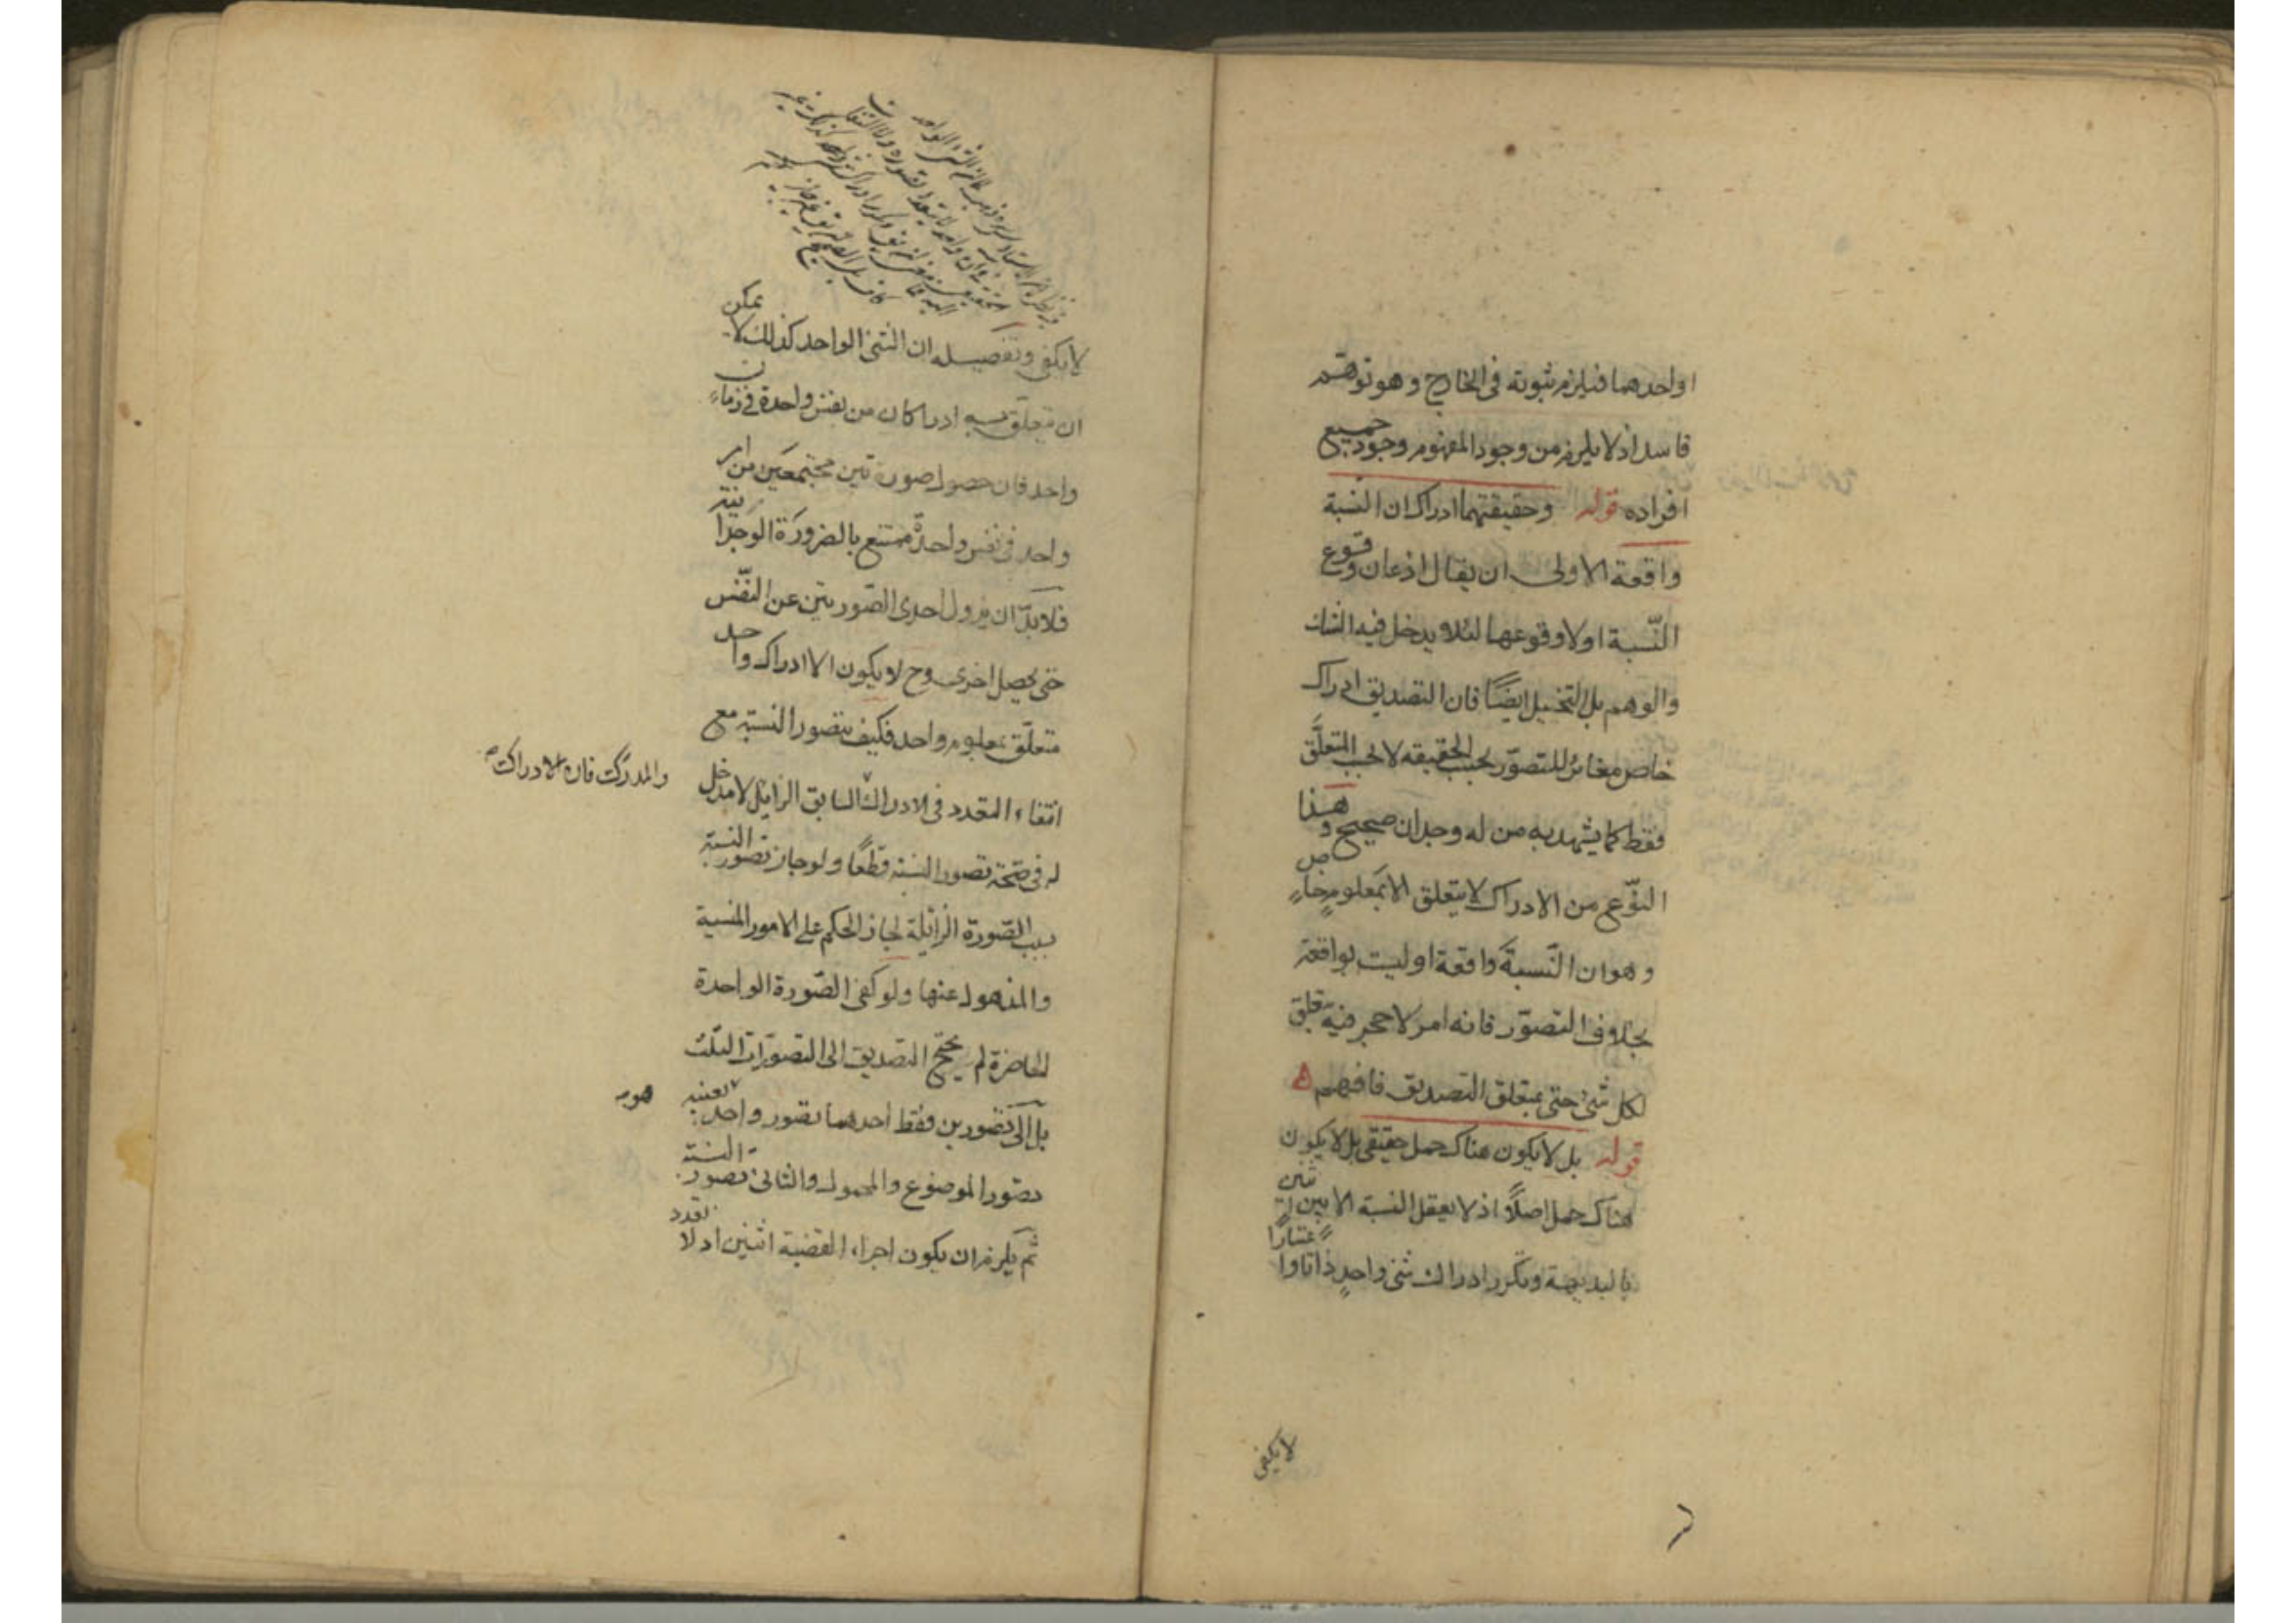 او احدهما فيلزم ثبوته فى الخارج وهو توهم
فاسد اذ لا يلزم من وجود المفهوم وجود جميع
افراده قوله وحقيقتهما ادراك ان النسبة
واقعة الاولى ان يقال اذعان وقوع
النّسبة او لا وقوعها لئلا يدخل فيه الشك
والوهم بل التخييل ايضًا فان التصديق ادراك
خاص مغائر للتصوّر بحسب الحقيقة لا بحسب المتعلَّق
فقط كما يشهد به من له وجدان صحيح وهذا
النّوع من الادراك لا يتعلق الا بمعلوم خاص
وهو ان النّسبة واقعة او ليست بواقعة
بخلاف التصوّر فانه امر لا حجر فيه يتعلق
لكل شئ حتى بمتعلق التصديق فافهم
قوله بل لا يكون هناك حمل حقيقى بل لا يكون
هناك حمل اصلًا اذ لا يعقل النسبة الا بين اثنين
بالبديهة وتكرر ادراك شئ واحدٍ ذاتا واعتبارًا
لا يكفى
لا يكفى وتفصيله ان الشئ الواحد كذلك لا يمكن
ان يتعلّق به ادراكان من نفس واحدة فى زمان
واحد فان حصول صورتين مجتمعتين من امر
واحد فى نفس واحدة ممتنع بالضرورة الوجدانية
فلا بدّ ان يزول احدى الصّورتين عن النّفس
حتى يحصل اخرى وح لا يكون الا ادراك واحد
متعلّق بمعلوم واحد فكيف يتصور النسبة مع
انتفاء التعدد فى الادراك السابق الزايل لا مدخل
والمدرك فان الادراك
له فى صحّة تصور النسبة قطعًا ولو جاز تصور النسبة
بسبب الصّورة الزائلة لجاز الحكم على الامور المنسية
والمذهول عنها ولو كفى الصّورة الواحدة
الحاضرة لم يحتج التصديق الى التصوّرات الثلث
بل الى تصورين فقط احدهما تصور واحد بعينه
هو
تصور الموضوع والمحمول والثانى تصور النسبة
ثم يلزم ان يكون اجزاء القضية اثنين اذ لا تعدد